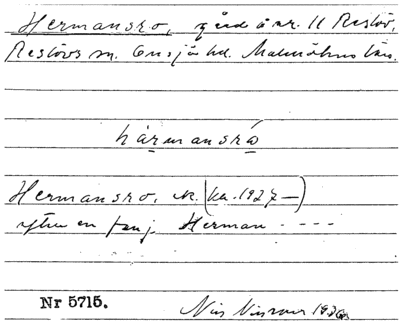 Hermansro, gård å nr. 11 Restöv,
Restövs sn. Onsjö hd. Malmöhus län.
härmansrå
Hermansro, (ka. 1927 —)
efter en Herman - - - -
Nr 5715.
Nils 1930